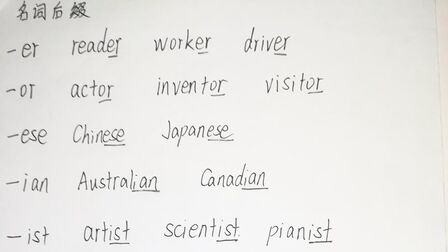 名词后缀
-er reader worker driver
-or actor inventor visitor
-ese Chinese Japanese
-ian Australian Canadian
-ist artist scientist pianist